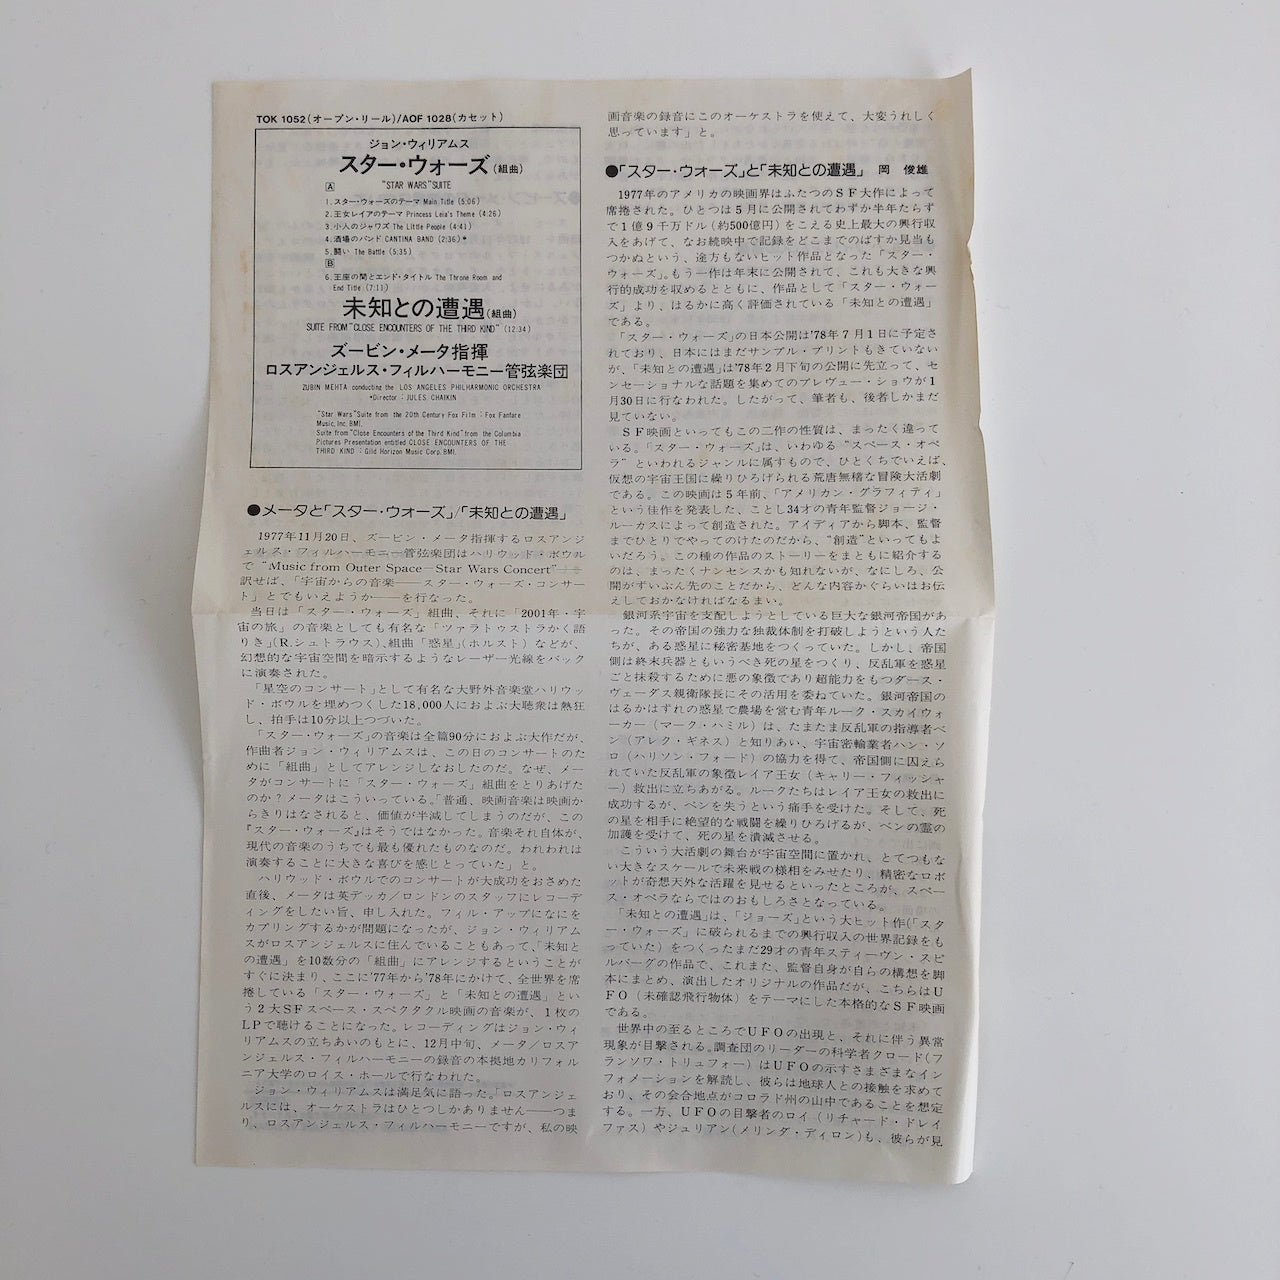 TOK 1052(オープン・リール)/AOF 1028(カセット)
ジョン・ウィリアムス
スター・ウォーズ(組曲)
"STAR WARS"SUITE
A
1. スター・ウォーズのテーマ Main Title (5:06)
2. 王女レイアのテーマ Princess Leia's Theme (4:26)
3. 小人のジャワズ The Little People (4:41)
4. 酒場のバンド CANTINA BAND (2:36)*
5. 闘い The Battle (5:35)
B
6. 王座の間とエンド・タイトル The Throne Room and
End Title (7:11)
未知との遭遇(組曲)
SUITE FROM"CLOSE ENCOUNTERS OF THE THIRD KIND" (12:34)
ズービン・メータ指揮
ロスアンジェルス・フィルハーモニー管弦楽団
ZUBIN MEHTA conducting the LOS ANGELES PHILHARMONIC ORCHESTRA
*Director : JULES CHAIKIN
"Star Wars"Suite from the 20th Century Fox Film : Fox Fanfare
Music, Inc. BMI.
Suite from"Close Encounters of the Third Kind"from the Columbia
Pictures Presentation entitled CLOSE ENCOUNTERS OF THE
THIRD KIND : Gild Horizon Music Corp. BMI.
●メータと「スター・ウオーズ」/「未知との遭遇」
1977年11月20日、ズービン・メータ指揮するロスアンジ
ェルス・フィルハーモニー管弦楽団はハリウッド・ボウル
で "Music from Outer Space—Star Wars Concert"」を
訳せば、「宇宙からの音楽——スター・ウォーズ・コンサー
ト」とでもいえようか——を行なった。
当日は「スター・ウォーズ」組曲、それに「2001年・宇
宙の旅」の音楽としても有名な「ツァラトゥストラかく語
りき」(R.シュトラウス)、組曲「惑星」(ホルスト) などが、
幻想的な宇宙空間を暗示するようなレーザー光線をバック
に演奏された。
「星空のコンサート」として有名な大野外音楽堂ハリウッ
ド・ボウルを埋めつくした18,000人におよぶ大聴衆は熱狂
し、拍手は10分以上つづいた。
「スター・ウォーズ」の音楽は全篇90分におよぶ大作だが、
作曲者ジョン・ウィリアムスは、この日のコンサートのた
めに「組曲」としてアレンジしなおしたのだ。なぜ、メー
タがコンサートに「スター・ウォーズ」組曲をとりあげた
のか？メータはこういっている。「普通、映画音楽は映画か
らきりはなされると、価値が半減してしまうのだが、この
『スター・ウォーズ』はそうではなかった。音楽それ自体が、
現代の音楽のうちでも最も優れたものなのだ。われわれは
演奏することに大きな喜びを感じとっていた」と。
ハリウッド・ボウルでのコンサートが大成功をおさめた
直後、メータは英デッカ/ロンドンのスタッフにレコーデ
ィングをしたい旨、申し入れた。フィル・アップになにを
カプリングするかが問題になったが、ジョン・ウィリアム
スがロスアンジェルスに住んでいることもあって、「未知と
の遭遇」を10数分の「組曲」にアレンジするということが
すぐに決まり、ここに'77年から'78年にかけて、全世界を席
捲している「スター・ウォーズ」と「未知との遭遇」とい
う2大SFスペース・スペクタクル映画の音楽が、1枚の
LPで聴けることになった。レコーディングはジョン・ウィ
リアムスの立ちあいのもとに、12月中旬、メータ/ロスア
ンジェルス・フィルハーモニーの録音の本拠地カリフォル
ニア大学のロイス・ホールで行なわれた。
ジョン・ウィリアムスは満足気に語った。「ロスアンジェ
ルスには、オーケストラはひとつしかありません——つま
り、ロスアンジェルス・フィルハーモニーですが、私の映
画音楽の録音にこのオーケストラを使えて、大変うれしく
思っています」と。
●「スター・ウォーズ」と「未知との遭遇」 岡 俊雄
1977年のアメリカの映画界はふたつのSF大作によって
席捲された。ひとつは5月に公開されてわずか半年たらず
で1億9千万ドル(約500億円)をこえる史上最大の興行収
入をあげて、なお続映中で記録をどこまでのばすか見当も
つかぬという、途方もないヒット作品となった「スター・
ウォーズ」。もう一作は年末に公開されて、これも大きな興
行的成功を収めるとともに、作品として「スター・ウォー
ズ」より、はるかに高く評価されている「未知との遭遇」
である。
「スター・ウォーズ」の日本公開は'78年7月1日に予定さ
れており、日本にはまだサンプル・プリントもきていない
が、「未知との遭遇」は'78年2月下旬の公開に先立って、セ
ンセーショナルな話題を集めてのプレヴュー・ショウが1
月30日に行なわれた。したがって、筆者も、後者しかまだ
見ていない。
SF映画といってもこの二作の性質は、まったく違って
いる。「スター・ウォーズ」は、いわゆる "スペース・オペ
ラ" といわれるジャンルに属すもので、ひとくちでいえば、
仮想の宇宙王国に繰りひろげられる荒唐無稽な冒険大活劇
である。この映画は5年前、「アメリカン・グラフィティ」
という佳作を発表した、ことし34才の青年監督ジョージ・
ルーカスによって創造された。アイディアから脚本、監督
までひとりでやってのけたのだから、"創造"といってもよ
いだろう。この種の作品のストーリーをまともに紹介する
のは、まったくナンセンスかも知れないが、なにしろ、公
開がずいぶん先のことだから、どんな内容かぐらいはお伝
えしておかなければなるまい。
銀河系宇宙を支配しようとしている巨大な銀河帝国があ
った。その帝国の強力な独裁体制を打破しようという人た
ちが、ある惑星に秘密基地をつくっていた。しかし、帝国
側は終末兵器ともいうべき死の星をつくり、反乱軍を惑星
ごと抹殺するために悪の象徴であり超能力をもつダース・
ヴェーダス親衛隊長にその活用を委ねていた。銀河帝国の
はるかはずれの惑星で農場を営む青年ルーク・スカイウォ
ーカー(マーク・ハミル)は、たまたま反乱軍の指導者ベ
ン(アレク・ギネス)と知りあい、宇宙密輸業者ハン・ソ
ロ(ハリソン・フォード)の協力を得て、帝国側に囚えら
れていた反乱軍の象徴レイア王女(キャリー・フィッシャ
ー)救出に立ちあがる。ルークたちはレイア王女の救出に
成功するが、ベンを失うという痛手を受けた。そして、死
の星を相手に絶望的な戦闘を繰りひろげるが、ベンの霊の
加護を受けて、死の星を潰滅させる。
こういう大活劇の舞台が宇宙空間に置かれ、とてつもな
い大きなスケールで未来戦の様相をみせたり、精密なロボ
ットが奇想天外な活躍を見せるといったところが、スペー
ス・オペラならではのおもしろさとなっている。
「未知との遭遇」は、「ジョーズ」という大ヒット作(「スタ
ー・ウォーズ」に破られるまでの興行収入の世界記録をも
っていた)をつくったまだ29才の青年スティーヴン・スピ
ルバーグの作品で、これまた、監督自身が自らの構想を脚
本にまとめ、演出したオリジナルの作品だが、こちらはU
FO(未確認飛行物体)をテーマにした本格的なSF映画
である。
世界中の至るところでUFOの出現と、それに伴う異常
現象が目撃される。調査団のリーダーの科学者クロード(フ
ランソワ・トリュフォー)はUFOの示すさまざまなイン
フォメーションを解読し、彼らは地球人との接触を求めて
おり、その会合地点がコロラド州の山中であることを想定
する。一方、UFOの目撃者のロイ(リチャード・ドレイ
ファス)やジュリアン(メリンダ・ディロン)も、彼らが見